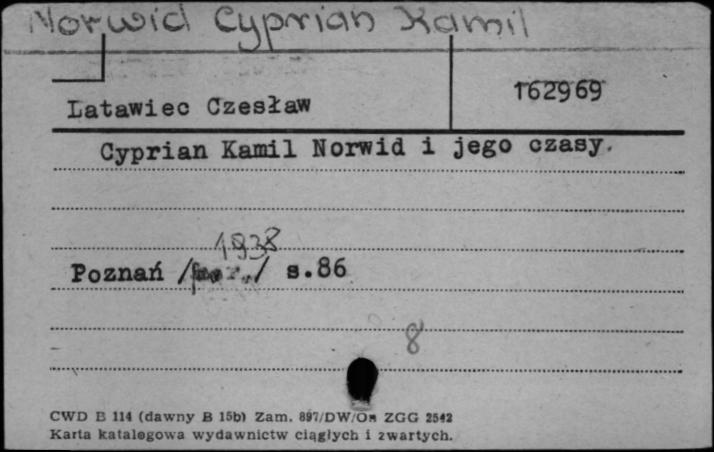 Norwid Cyprian Kamil
162969
Latawiec Czesław
Cyprian Kamil Norwid i jego czasy.
1938
Poznań / / s.86
8
CWD B 114 (dawny B 15b) Zam. 897/DW/Om ZGG 2542
Karta katalogowa wydawnictw ciągłych i zwartych.